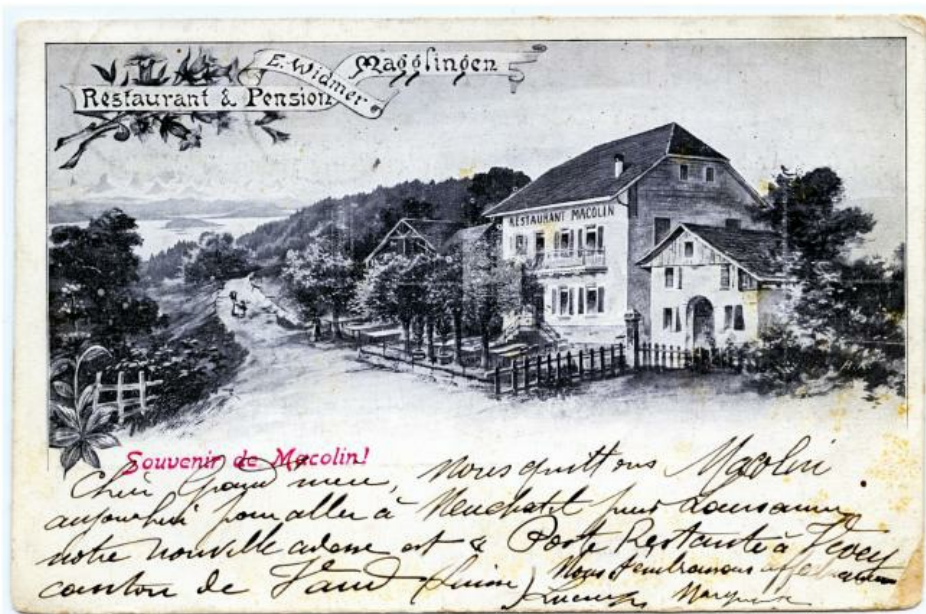 E. Widmer Magglingen
Restaurant & Pension
RESTAURANT MACOLIN
Souvenir de Macolin!
Cher Grand mère, nous quittons Macolin
aujourhui pour aller à Neuchatel puis Lausanne
notre nouvelle adresse est Poste Restante à Vevey
canton de Vaud (Suisse) Nous t'embrassons affectueusement